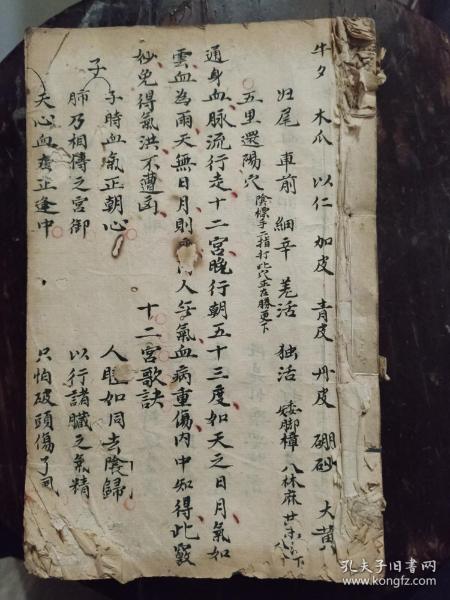 牛夕 木瓜 以仁 加皮 青皮 丹皮 硼砂 大黄
归尾 車前 細辛 羌活 独活 矮脚樟 八林麻
五里還陽穴 陰標手二指打此穴正在勝
通身血脉流行走十二宮晚行朝五十三度如天之日月氣如
雲血為雨天無日月則 人無氣血病重傷内中知得此竅
妙免得氣洪不遭凶 十二宮歌訣
子
子時血氣正朝心 人眠如同去陰歸
肺乃相傅之宮御 以行諸臟之氣精
天心血 正逢中 只怕破頭傷了
孔夫子旧书网
kongfz.com